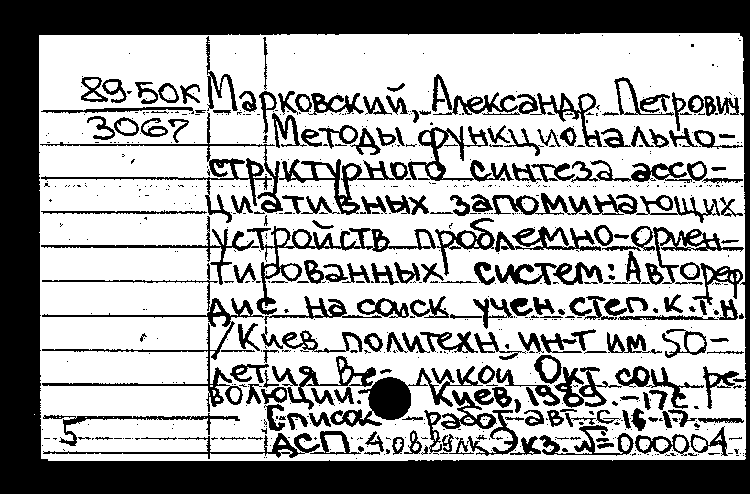 89-50к Марковский, Александр Петрович
3067 Методы функционально-
структурного синтеза ассо-
циативных запоминающих
устройств проблемно-ориен-
тированных систем: Автореф.
дис. на соиск. учен. степ. к.т.н.
/Киев. политехн. ин-т им. 50-
летия Ве- ликой Окт. соц. ре-
волюции.- Киев, 1989.-17с.
Список работ авт.: с. 16-17.
5 ДСП. 4.08.89 Экз. №=000004.